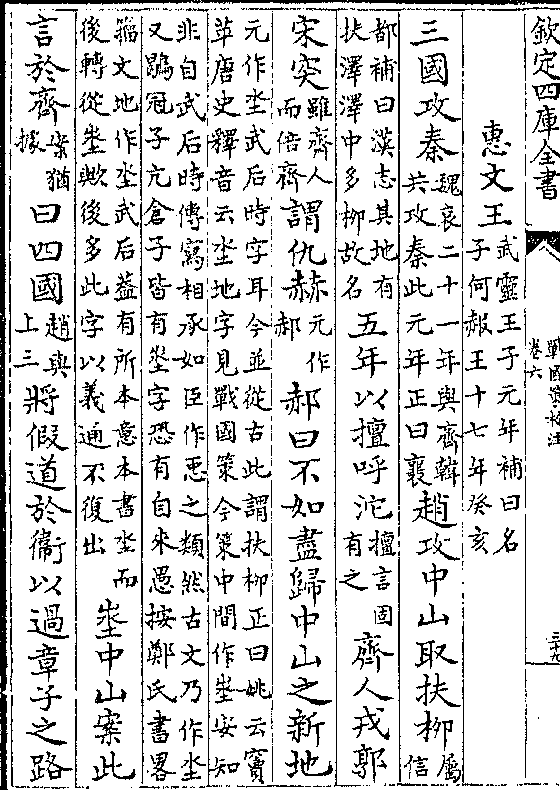 欽定四庫全書
戰國策校注
卷六
三十九
惠文王武靈王子元年補曰名子何赧王十七年癸亥
三國攻秦魏哀二十一年與齊韓共攻秦此元年正曰襄趙攻中山取扶柳屬信
都補曰漢志其地有扶澤澤中多柳故名五年以擅呼沱擅言固有之齊人戎郭
宋突雖齊人而倍齊謂仇赫元作郝郝曰不如盡歸中山之新地
元作坔武后時字耳今並從古此謂扶柳正曰姚云竇苹唐史釋音云坔地字見戰國策今策中間作埊安知
非自武后時傳寫相承如臣作𢘑之類然古文乃作坔又鶡冠子亢倉子皆有埊字恐有自來愚按鄭氏書畧
籀文地作坔武后蓋有所本意本書坔而後轉從埊歟後多此字以義通不復出埊中山案此
言於齊案猶據曰四國趙與上三將假道於衞以過章子之路